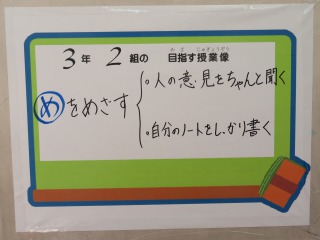 3年 2組の 目指す授業像
・人の意見をちゃんと聞く
めをめざす
・自分のノートをしっかり書く